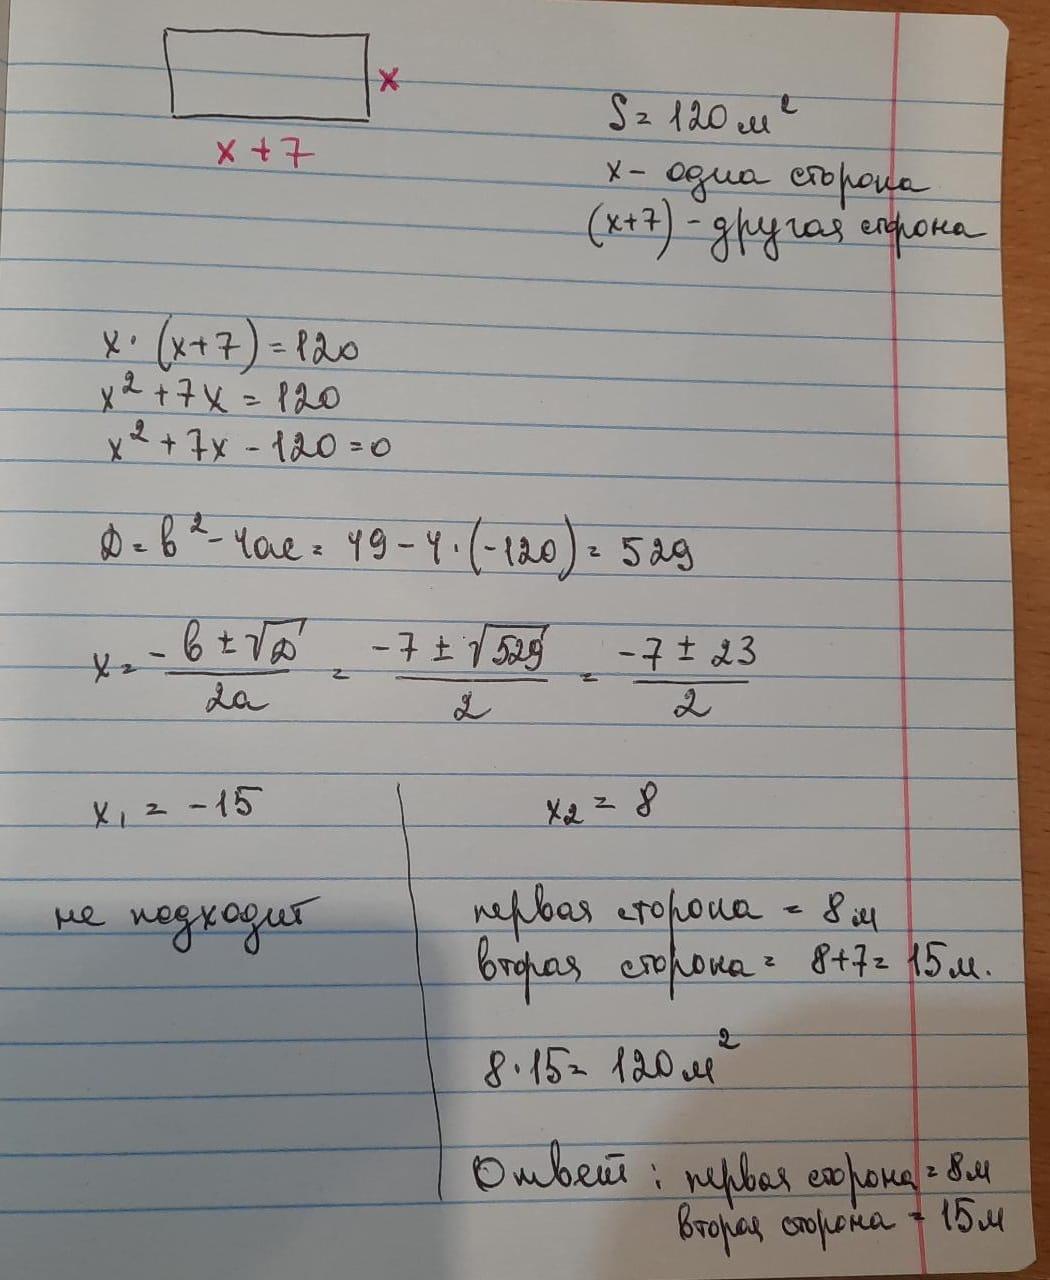 x
x + 7
S = 120 м²
x - одна сторона
(x+7) - другая сторона
x · (x+7) = 120
x² + 7x = 120
x² + 7x - 120 = 0
D = в² - 4ас = 49 - 4 · (-120) = 529
x = (-в ± √D)/2а = (-7 ± √529)/2 = (-7 ± 23)/2
x₁ = -15
x₂ = 8
не подходит
первая сторона = 8 м
вторая сторона = 8+7 = 15 м.
8 · 15 = 120 м²
Ответ : первая сторона = 8 м
вторая сторона = 15 м